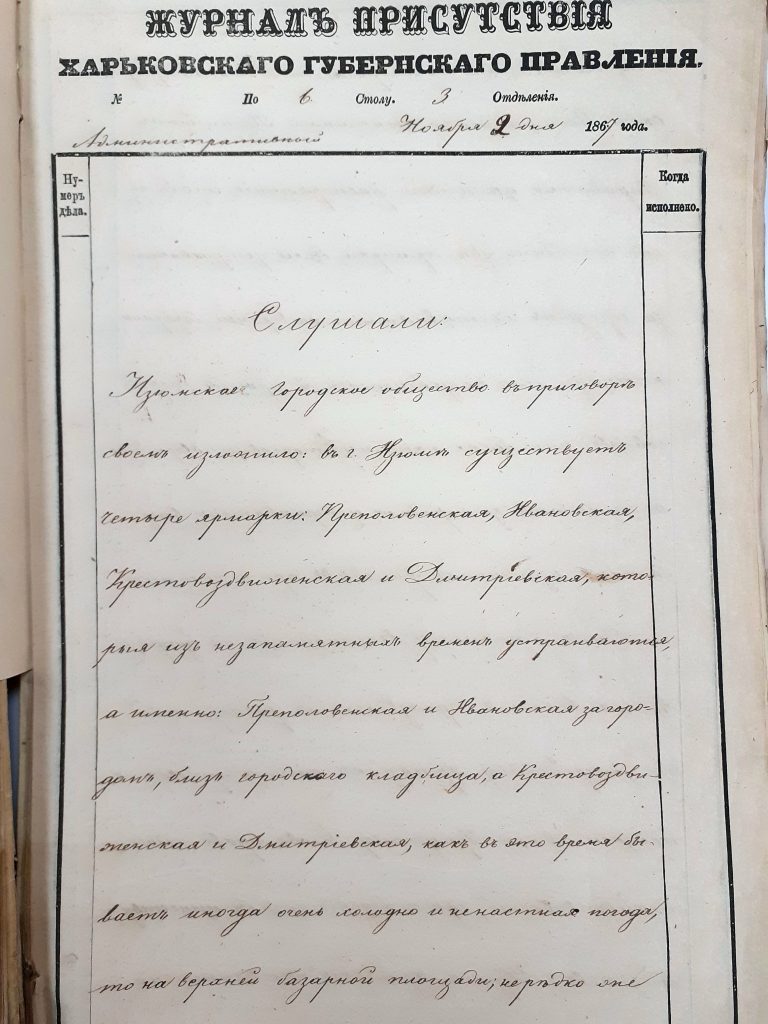 ЖУРНАЛЪ ПРИСУТСТВІЯ
ХАРЬКОВСКАГО ГУБЕРНСКАГО ПРАВЛЕНІЯ.
№ По 6 Столу. 3 Отдѣленія.
Административный Ноября 2 дня 1867 года.
Ну-
меръ
дѣла.
Когда
исполнено.
Слушали:
Изюмское городское общество въ приговорѣ
своемъ изложило: въ г. Изюмѣ существуетъ
четыре ярмарки: Преполовенская, Ивановская,
Крестовоздвиженская и Дмитріевская, кото-
рыя изъ незапамятныхъ временъ устраиваются,
а именно: Преполовенская и Ивановская за горо-
домъ, близъ городскаго кладбища, а Крестовоздви-
женская и Дмитріевская, какъ въ это время бы-
ваетъ иногда очень холодно и ненастная погода,
то на верхней базарной площади; нерѣдко же